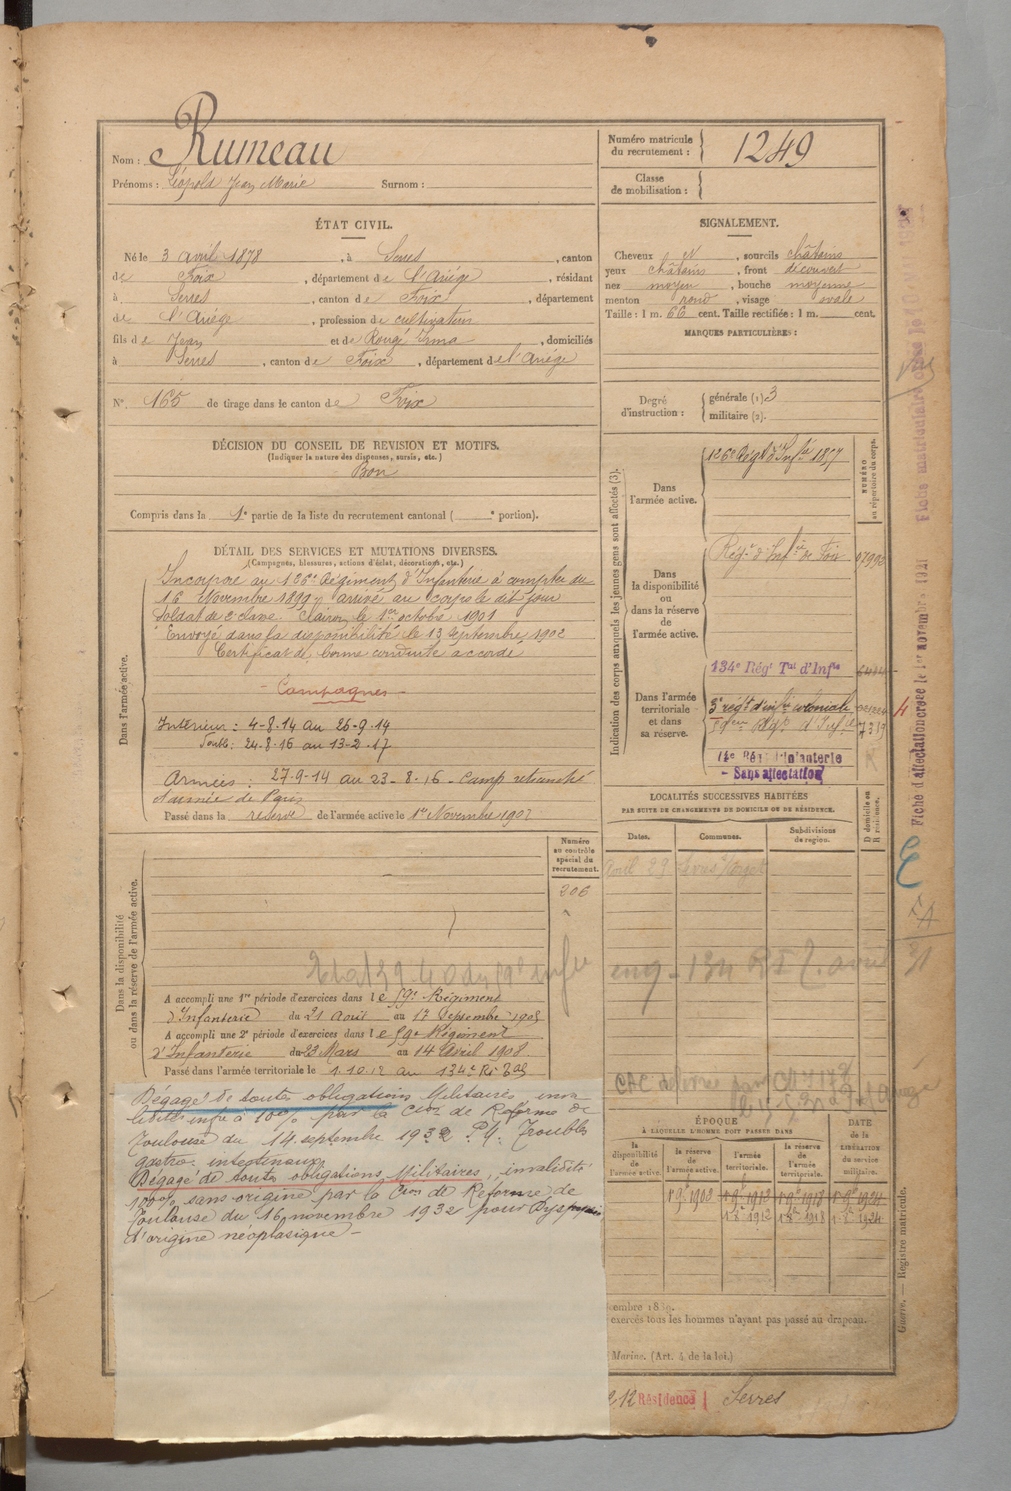 Nom : Rumeau
Prénoms : Léopold Jean Marie Surnom :
Numéro matricule
du recrutement : 1249
Classe
de mobilisation :
ÉTAT CIVIL.
Né le 3 avril 1878, à Serres, canton
de Foix, département de l'Ariége, résidant
à Serres, canton de Foix, département
de l'Ariége, profession de cultivateur
fils de Jean et de Rougé Irma, domiciliés
à Serres, canton de Foix, département de l'Ariége
N° 165 de tirage dans le canton de Foix
DÉCISION DU CONSEIL DE REVISION ET MOTIFS.
(Indiquer la nature des dispenses, sursis, etc.)
Bon
Compris dans la 1e partie de la liste du recrutement cantonal ( e portion).
SIGNALEMENT.
Cheveux et, sourcils châtains
yeux châtains, front découvert
nez moyen, bouche moyenne
menton rond, visage ovale
Taille : 1 m. 66 cent. Taille rectifiée : 1 m. cent.
MARQUES PARTICULIÈRES :
Degré
d'instruction :
générale (1) 3
militaire (2).
DÉTAIL DES SERVICES ET MUTATIONS DIVERSES.
(Campagnes, blessures, actions d'éclat, décorations, etc.)
Dans l'armée active.
Incorporé au 126e Régiment d'Infanterie à compter du
16 Novembre 1899, arrivé au corps le dit jour
Soldat de 2e classe. Clairon le 1er octobre 1901
Envoyé dans la disponibilité le 13 Septembre 1902
Certificat de bonne conduite accordé
- Campagnes -
Intérieur : 4-8-14 au 26-9-14
24-8-16 au 13-2-17
Armées : 27-9-14 au 23-8-16 - Camp retranché
et armée de Paris
Passé dans la réserve de l'armée active le 1er Novembre 1902
Indication des corps auxquels les jeunes gens sont affectés (3).
NUMÉRO
au répertoire du corps.
Dans
l'armée active.
126e Régt d'Infie
Dans
la disponibilité
ou
dans la réserve
de
l'armée active.
Régt d'Infie de Foix
Dans l'armée
territoriale
et dans
sa réserve.
134e Régt Tal d'Infie
3e régt d'infie coloniale
14e Régt d'Infanterie
- Sans affectation
LOCALITÉS SUCCESSIVES HABITÉES
PAR SUITE DE CHANGEMENTS DE DOMICILE OU DE RÉSIDENCE.
D domicile ou
R résidence.
Dates.
Communes.
Subdivisions
de region.
Avril 29
Dans la disponibilité
ou dans la réserve de l'armée active.
Numéro
au contrôle
spécial du
recrutement.
206
A accompli une 1re période d'exercices dans le 59e Régiment
d'Infanterie du 21 Août au 17 Septembre 1905
A accompli une 2e période d'exercices dans le 59e Régiment
d'Infanterie du 23 Mars au 14 Avril 1908.
Passé dans l'armée territoriale le 1.10.12 au 134e Rt Tal
Dégagé de toutes obligations Militaires inva-
lidité infre à 10% par la Cion de Réforme de
Toulouse du 14 septembre 1932 P.V. Troubles
gastro intestinaux
Dégagé de toutes obligations Militaires, invalidité
100% sans origine par la Cion de Réforme de
Toulouse du 16 novembre 1932 pour Dyspepsie
d'origine néoplasique -
ÉPOQUE
A LAQUELLE L'HOMME DOIT PASSER DANS
DATE
de la
LIBÉRATION
du service
militaire.
la
disponibilité
de l'armée active.
la réserve
de
l'armée active.
l'armée
territoriale.
la réserve
de
l'armée
territoriale.
cembre 1889.
exercés tous les hommes n'ayant pas passé au drapeau.
Marine. (Art. 4 de la loi.)
Résidence Serres
Guerre. — Registre matricule.
Fiche d'affectation créée le 1er novembre 1921
Fiche matriculaire créée le